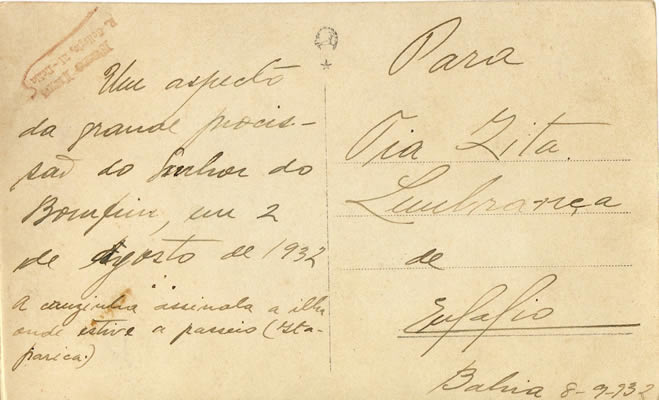 Um aspecto
da grande procis-
saõ do Senhor do
Bomfim, em 2
de Agosto de 1932
A cruzinha assinala a ilha
onde estive a passeio (Ita-
parica.)
Para
Tia Zita.
Lembrança
de
Bahia 8-9-932